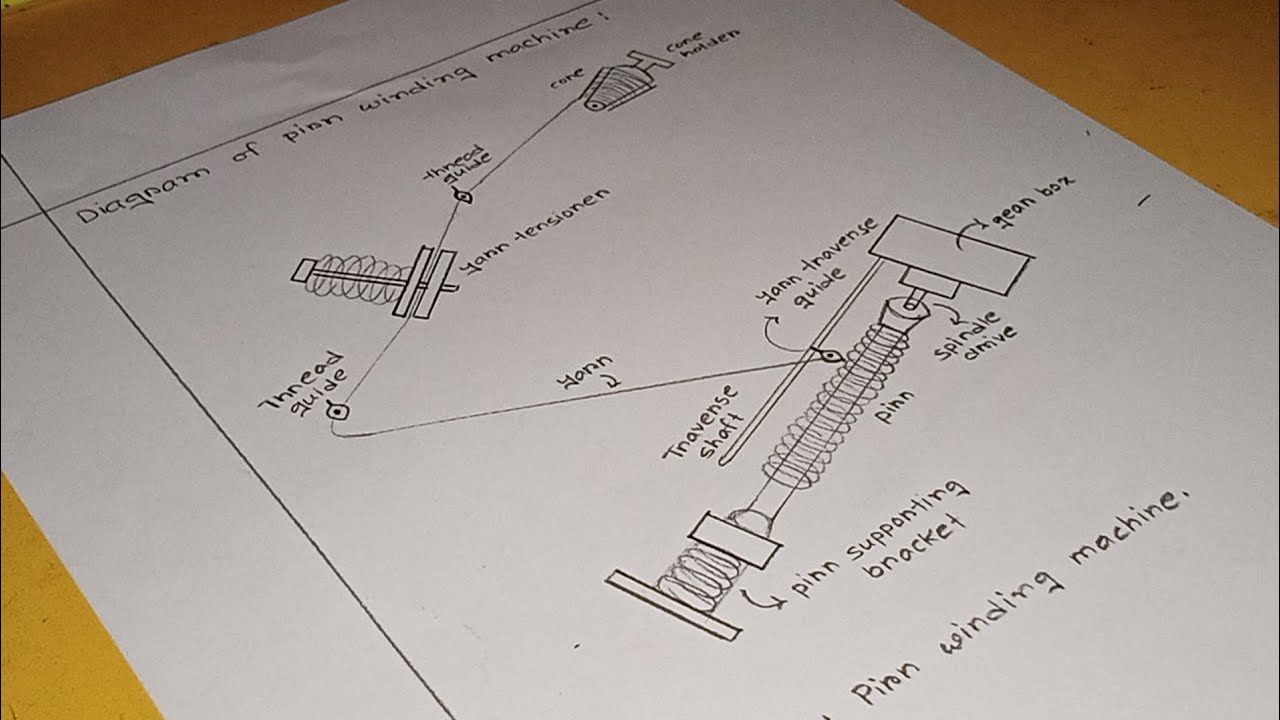 Diagram of pirn winding machine:
cone
cone
holder
thread
guide
yarn tensioner
Thread
guide
yarn
yarn traverse
guide
gear box
spindle
drive
Traverse
shaft
pirn
pirn supporting
bracket
Pirn winding machine.